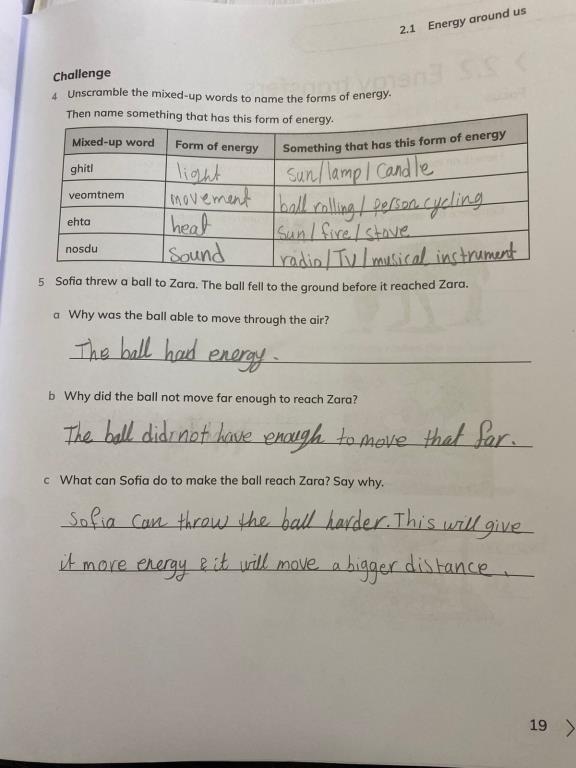 2.1 Energy around us
Challenge
4 Unscramble the mixed-up words to name the forms of energy.
Then name something that has this form of energy.
Mixed-up word Form of energy Something that has this form of energy
ghitl light sun/lamp/candle
veomtnem movement ball rolling/person cycling
ehta heat sun/fire/stove
nosdu sound radio/TV/musical instrument
5 Sofia threw a ball to Zara. The ball fell to the ground before it reached Zara.
a Why was the ball able to move through the air?
The ball had energy.
b Why did the ball not move far enough to reach Zara?
The ball did not have enough to move that far.
c What can Sofia do to make the ball reach Zara? Say why.
Sofia can throw the ball harder. This will give
it more energy & it will move a bigger distance.
19